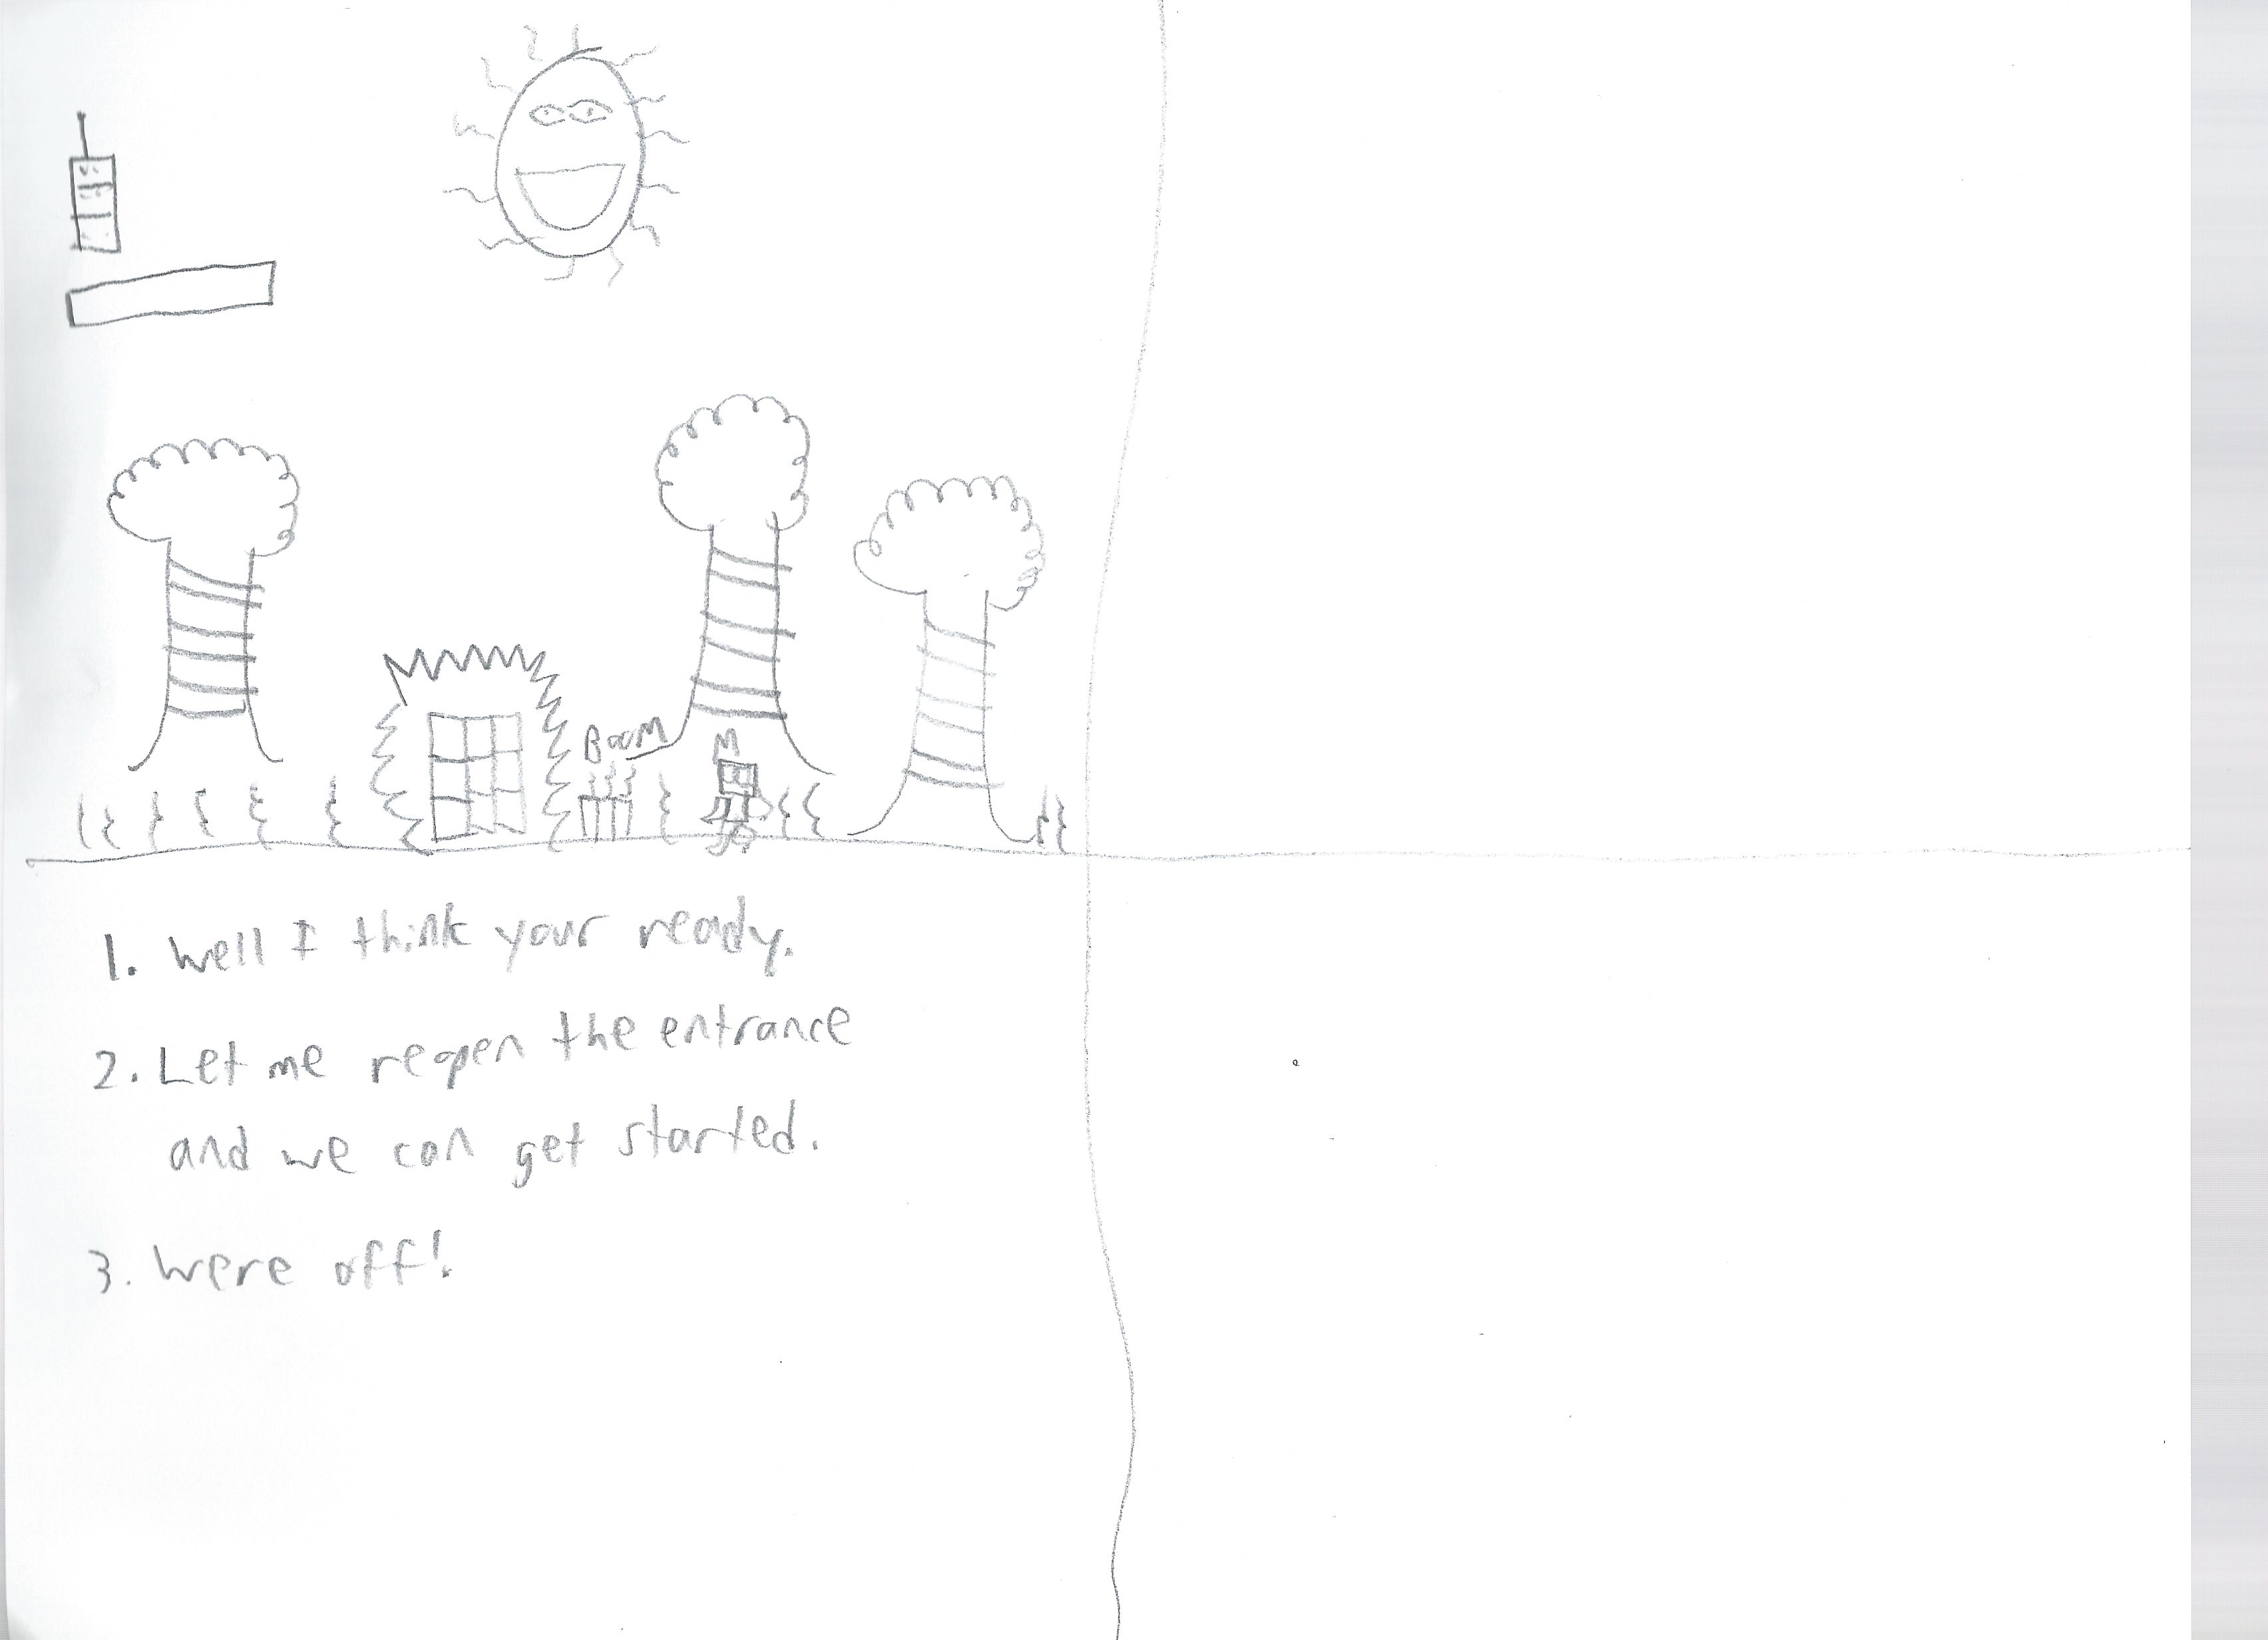 BOOM
M
1. Well I think your ready.
2. Let me reopen the entrance
and we can get started.
3. Were off!